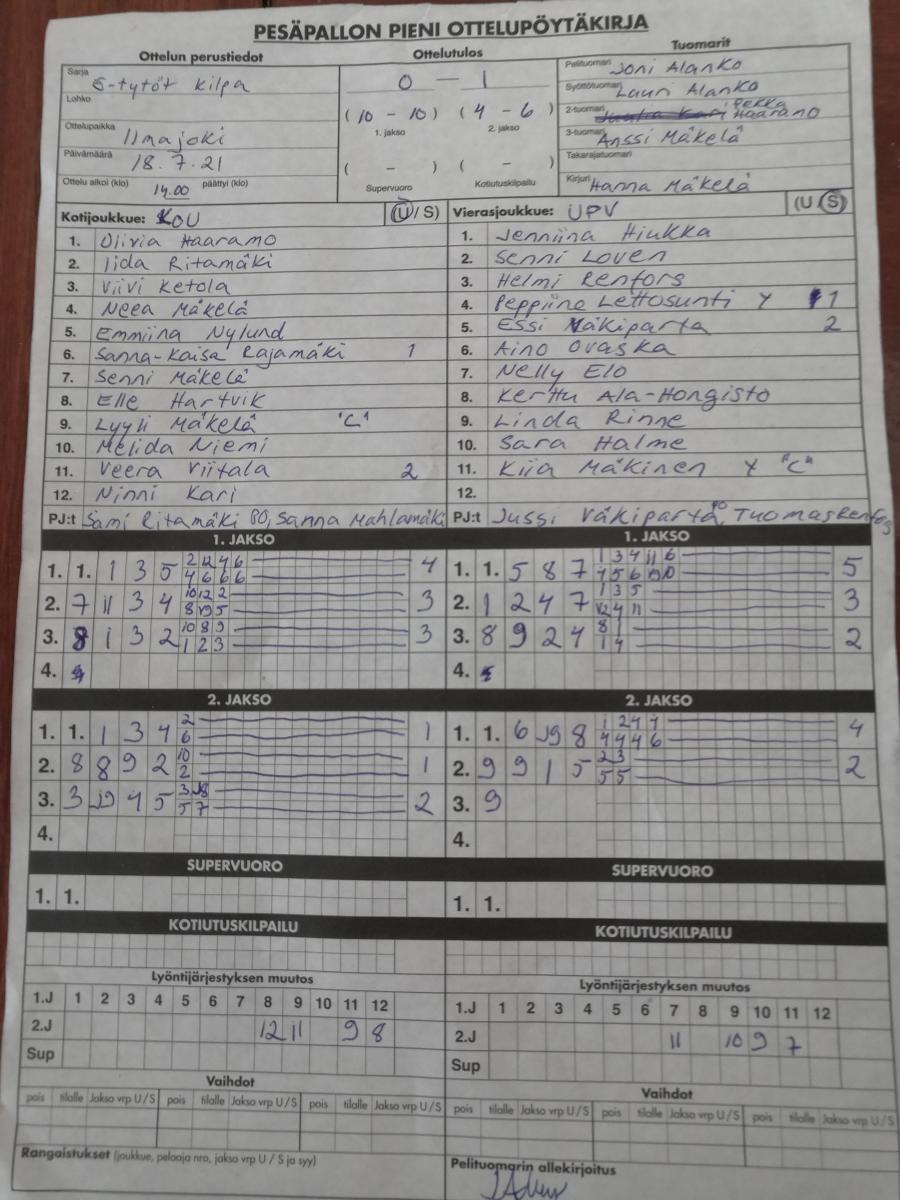 PESÄPALLON PIENI OTTELUPÖYTÄKIRJA
Ottelun perustiedot Ottelutulos Tuomarit
Sarja
Kilpa
Lohko
Ottelupaikka Ilmajoki
Päivämäärä 18.7.21
Ottelu alkoi (klo) 14.00 päättyi (klo)
0 – 1
(10 – 10) (4 – 6)
1. jakso 2. jakso
( – ) ( – )
Supervuoro Kotiutuskilpailu
Pelituomari Joni Alanko
Syöttötuomari Lauri Alanko
2-tuomari Pekka Haaramo
3-tuomari Anssi Mäkelä
Takarajatuomari
Kirjuri Hanna Mäkelä
Kotijoukkue: KOU (U/S)
1. Olivia Haaramo
2. Iida Ritamäki
3. Viivi Ketola
4. Neea Mäkelä
5. Emmiina Nylund
6. Sanna-Kaisa Rajamäki 1
7. Senni Mäkelä
8. Elle Hartvik
9. Lyyli Mäkelä "C"
10. Melida Niemi
11. Veera Viitala 2
12. Ninni Kari
PJ:t Sami Ritamäki PO, Sanna Mahlamäki
Vierasjoukkue: UPV (U S)
1. Jenniina Hiukka
2. Senni Loven
3. Helmi Renfors
4. Peppiina Lettosunti Y 1
5. Essi Väkiparta 2
6. Aino Ovaska
7. Nelly Elo
8. Kerttu Ala-Hongisto
9. Linda Rinne
10. Sara Halme
11. Kiia Mäkinen Y "C"
12.
PJ:t Jussi Väkiparta PO, Tuomas Renfors
1. JAKSO
1. 1. 1 3 5 4
2. 7 11 3 4 3
3. 8 1 3 2 3
4.
1. JAKSO
1. 1. 5 8 7 5
2. 1 2 4 7 3
3. 8 9 2 4 2
4.
2. JAKSO
1. 1. 1 3 4 2 1
6
2. 8 8 9 2 10 1
2
3. 3 4 5 2
4.
2. JAKSO
1. 1. 6 8 1 2 4 4 4
4 4 4 6
2. 9 9 1 5 2 3 2
5 5
3. 9
4.
SUPERVUORO
1. 1.
SUPERVUORO
1. 1.
KOTIUTUSKILPAILU
KOTIUTUSKILPAILU
Lyöntijärjestyksen muutos
1.J 1 2 3 4 5 6 7 8 9 10 11 12
2.J 12 11 9 8
Sup
Lyöntijärjestyksen muutos
1.J 1 2 3 4 5 6 7 8 9 10 11 12
2.J 11 10 9 7
Sup
Vaihdot
pois tilalle Jakso vrp U/S pois tilalle Jakso vrp U/S pois tilalle Jakso vrp U/S
Vaihdot
pois tilalle Jakso vrp U/S pois tilalle Jakso vrp U/S pois tilalle Jakso vrp U/S
Rangaistukset (joukkue, pelaaja nro, jakso vrp U / S ja syy)
Pelituomarin allekirjoitus